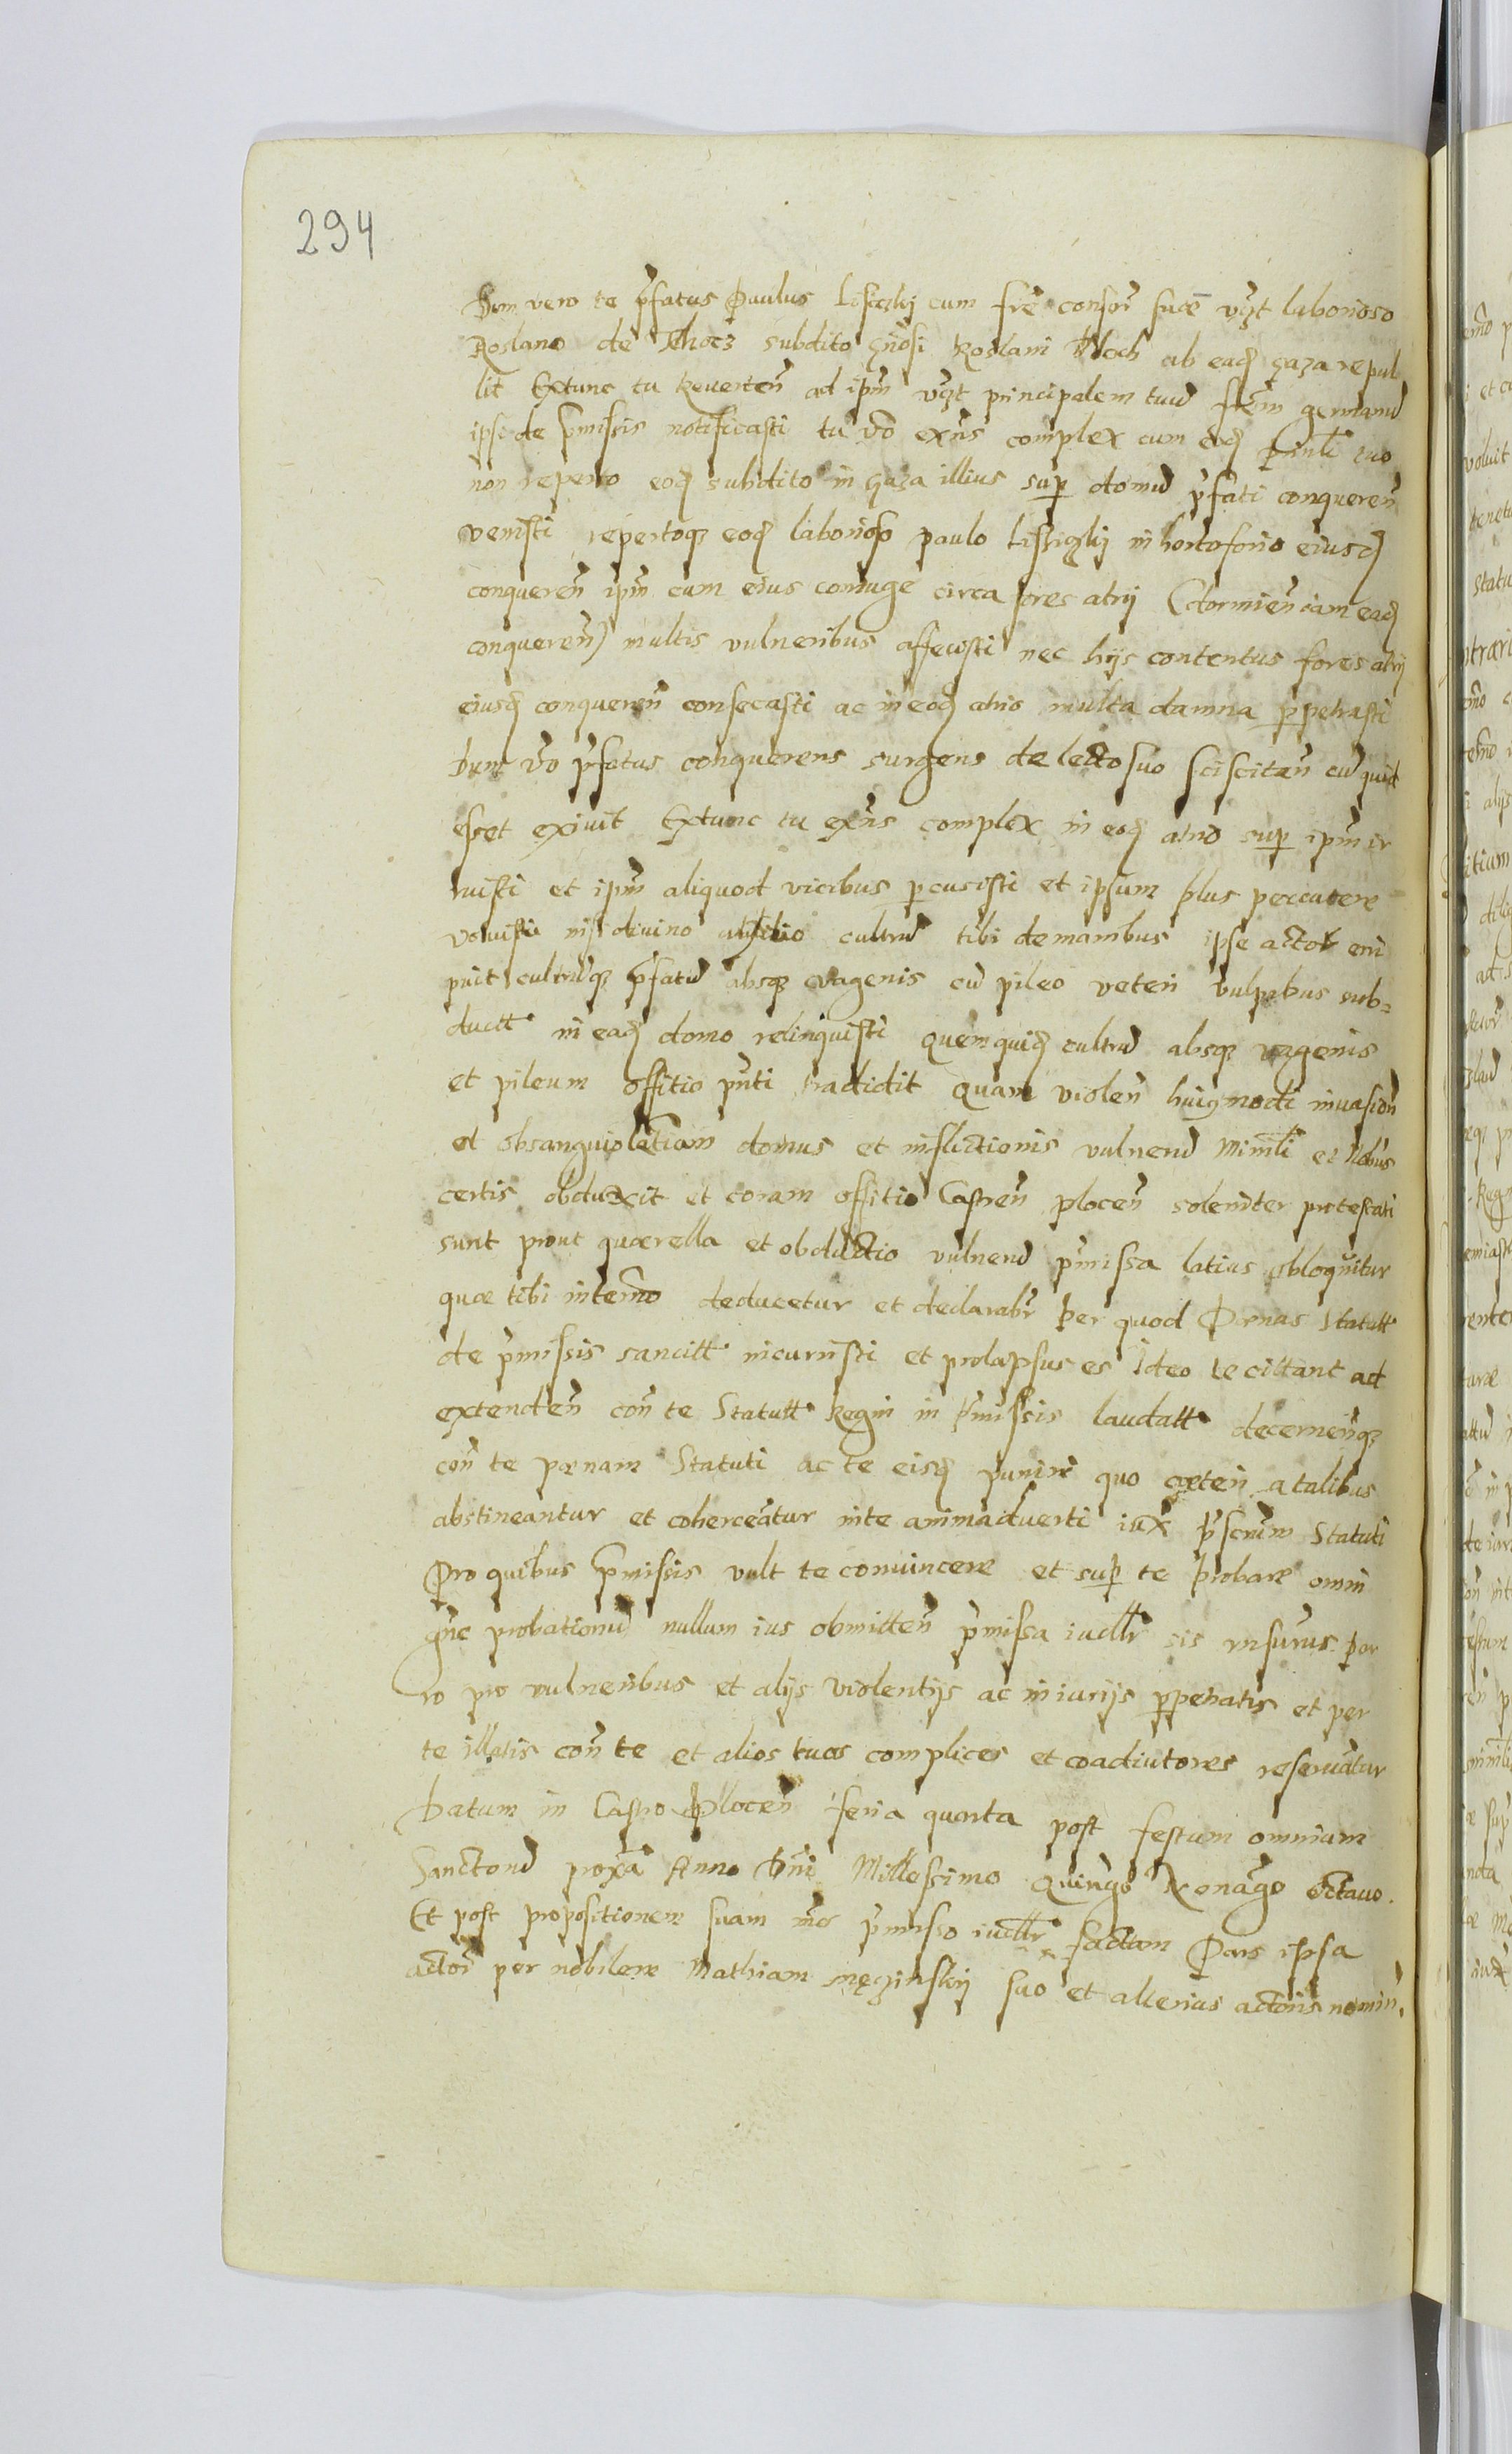 294
Dum vero te p̃fatus Paulus Lisiczky cum fr̃e consor̃ suæ vꝫt laborioso
Roslano de subdito gñosi Roslani Bloch ab eadꝫ gaza repul
lit Extunc tu Reverten̄ ad ipm̃ vꝫt principalem tuū fr̃em germanū
ipse de p̃missis notificasti tu v̄o exñs complex cum eodꝫ suo
non reperto eodꝫ subdito in gaza illius sup domū p̃fati conqueren̄
venisti repertoqꝫ eodꝫ laborioso paulo in hortoforio eiusdꝫ
conqueren̄ ipm̃ cum eius coniuge circa fores atrij (dormien̄ iam eadꝫ
conqueren̄) multis vulneribus affecisti nec hijs contentus fores atrij
eiusdꝫ conqueren̄ consecasti ac in eodꝫ atrio multa damna ppetrasti
Dum v̄o p̃fatus conquerens surgens de lecto suo sciscitan̄ cū quid
esset exivit Extunc tu exñs complex in eodꝫ atrio sup ipm̃ ir
ruisti et ipm̃ aliquod vicibus pcusisti et ipsum plus percutere
voluisti nisi divino auxilio cultrū tibi de manibus ipse actor eri
puit cultrūqꝫ p̃fatū absqꝫ vagenis cū pileo veteri vulpibus sub-
duct̃t in eadꝫ domo relinquisti Quemquidꝫ cultrū absqꝫ vagenis
et pileum offitio pñti tradidit Quam violen̄ huiꝰmodi invasion̄
et obsanguiolātiam domus et inflictionis vulnerū Minrli et Nobus
certis obduxit et coram offitio Castren̄ plocen̄ solemiter protestati
sunt prout quærella et obductio vulnerū p̃missa latius obloquitur
quæ tibi in ter̃no deducetur et declarabr̃ Per quod Pœnas Statutt
de p̃missis sancitt incurristi et prolapsus es Ideo te cittant ad
extenden̄ con̄ te Statutt Regni in p̃missis laudatt decernen̄qꝫ
con̄ te pœnam Statuti ac te eisdꝫ puniri quo cæteri a talibus
abstineantur et coherceātur in te animadverti iux̃ p̃scrum̃ Statuti
Pro quibus p̃missis vult te convincere et sup te probare omni
gñe probationū nullum ius obmitten̄ p̃missa iudlr̃ sis rnsurus Por
ro pro vulneribus et alijs violentijs ac iniurijs ppetratis et per
te illatis con̄ te et alios tuos complices et coadiutores reservātur
Datum in Castro Plocen̄ feria quarta post festum omnium
Sanctorū prox̃a Anno Dñi Millessimo Quingo Nonāgo octavo.
Et post propositionem suam mõ p̃misso iudlr̃ factam Pars ipsa
actor̃ per nobilem Mathiam męginsky suo et alterius actoris nomin̄.